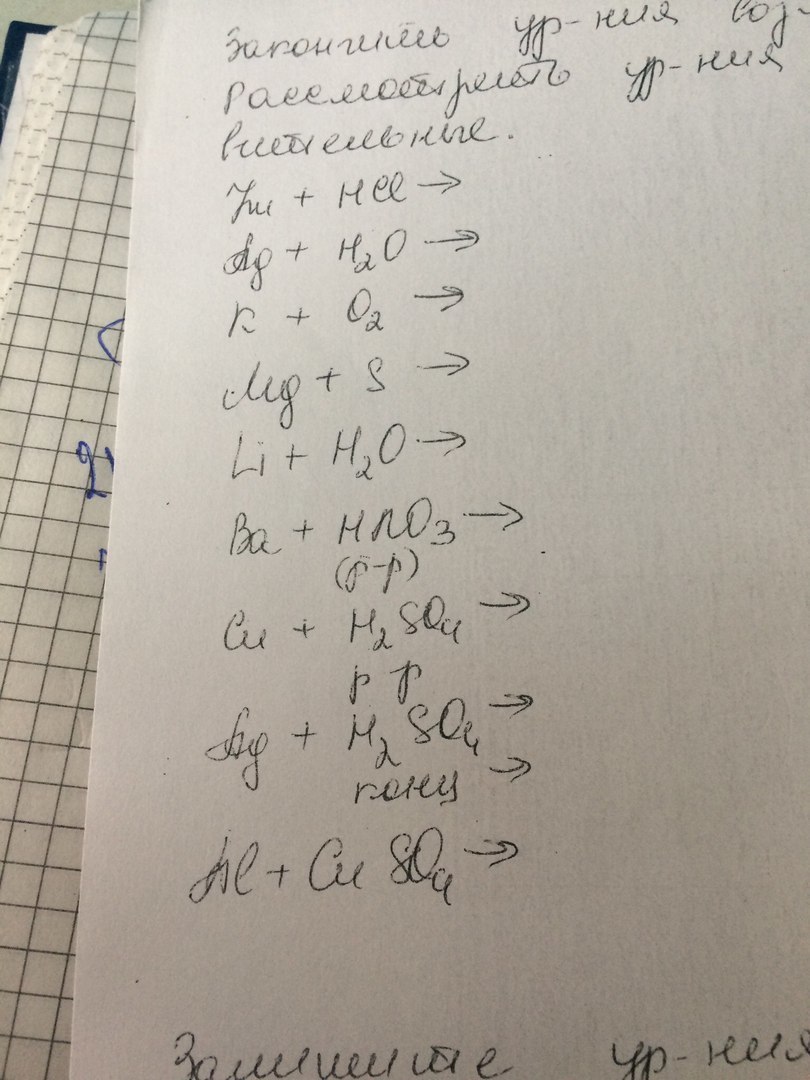 Закончить ур-ния воз-
Рассмотреть ур-ния
вительные.
Zn + HCl →
Ag + H₂O →
K + O₂ →
Mg + S →
Li + H₂O →
Ba + HNO₃ →
(р-р)
Cu + H₂SO₄ →
р р
Ag + H₂SO₄ →
конц →
Al + CuSO₄ →
Запишите ур-ния